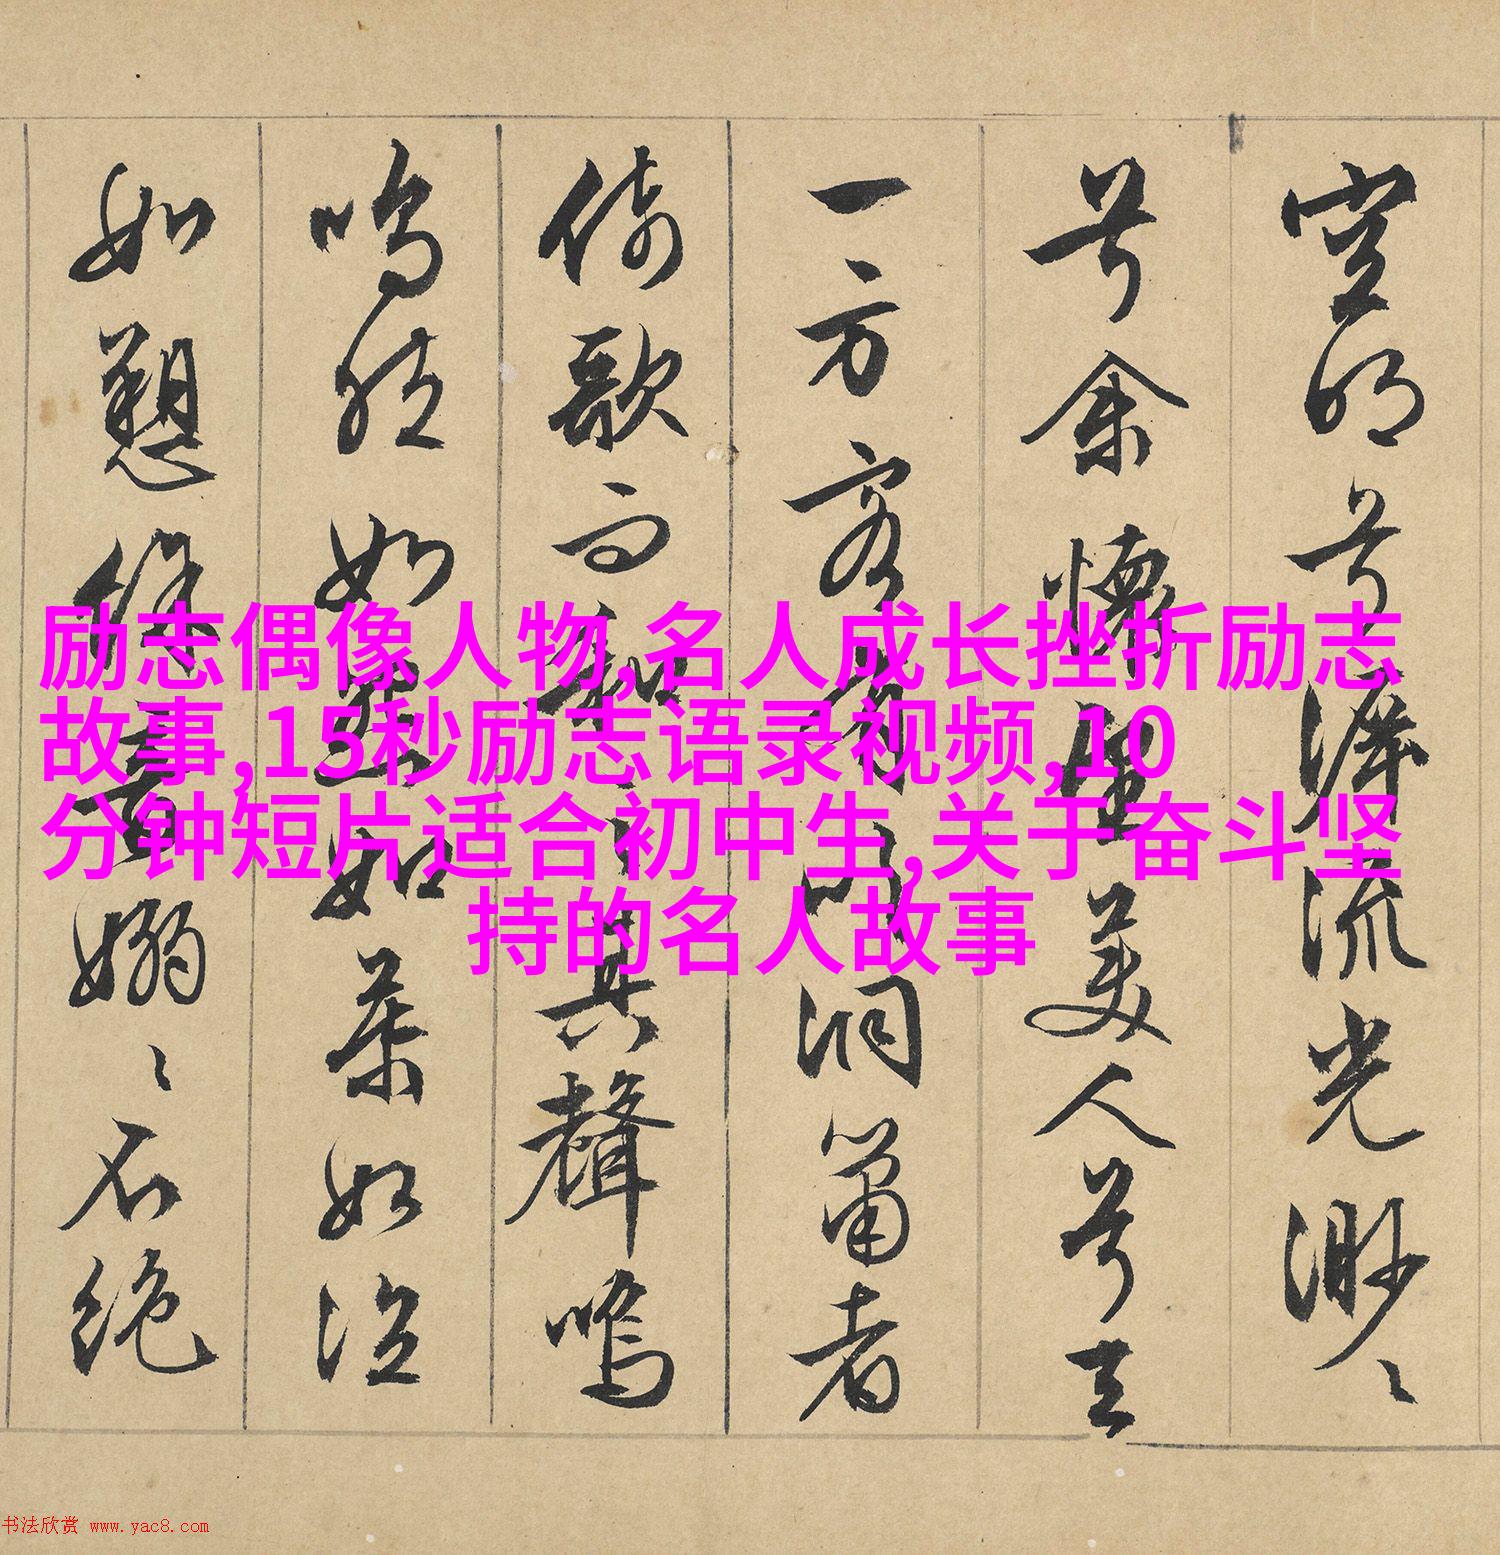 空明兮泝流光渺〻
兮余懷望美人兮天
一方客有吹洞簫者
倚歌而和之其聲嗚
嗚然如怨如慕如泣
如愬餘音嫋〻不絕
励志偶像人物,名人成长挫折励志
故事,15秒励志语录视频,10
分钟短片适合初中生,关于奋斗坚
持的名人故事
书法欣赏 www.yac8.com